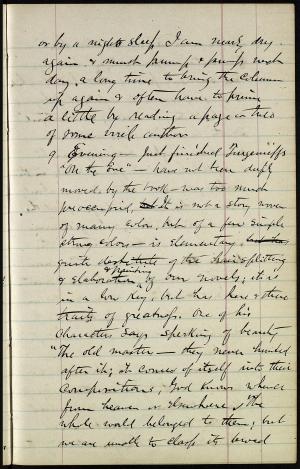 or by a night's sleep I am mainly dry
again & must pump & pump next
day a long time to bring the column
up again & often have to prime
a little by reading a page or two
of some virile author.
9 Evening — Just finished Turgenieff's
"On the Eve" — have not been deeply
moved by the book — was too much
preoccupied, It is not a story woven
of many colors, but of a few simple
strong colors — is elementary,
quite destitute of the hair splitting
& elaboration & painting of our novels; it is
in a low key, but has here & there
traits of greatness. One of his
characters says speaking of beauty
"The old masters — they never hunted
after it; it comes of itself into their
compositions, God knows whence
from heaven or elsewhere. The
whole world belonged to them; but
we are unable to clasp its broad